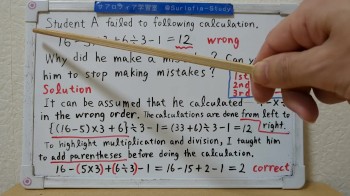 スアロラィア学習室 @Suriatia-Study
Student A failed to following calculation.
16-5×3+6÷3-1=12 wrong
Why did he make a mistake? Can
him to stop making mistakes?
1st
2nd
3rd
Solution
It can be assumed that he calculated
in the wrong order. The calculations are done from left to right.
{(16-5)×3+6}÷3-1=(33+6)÷3-1=12
To highlight multiplication and division, I taught him
to add parentheses before doing the calculation.
16-(5×3)+(6÷3)-1=16-15+2-1=2 correct